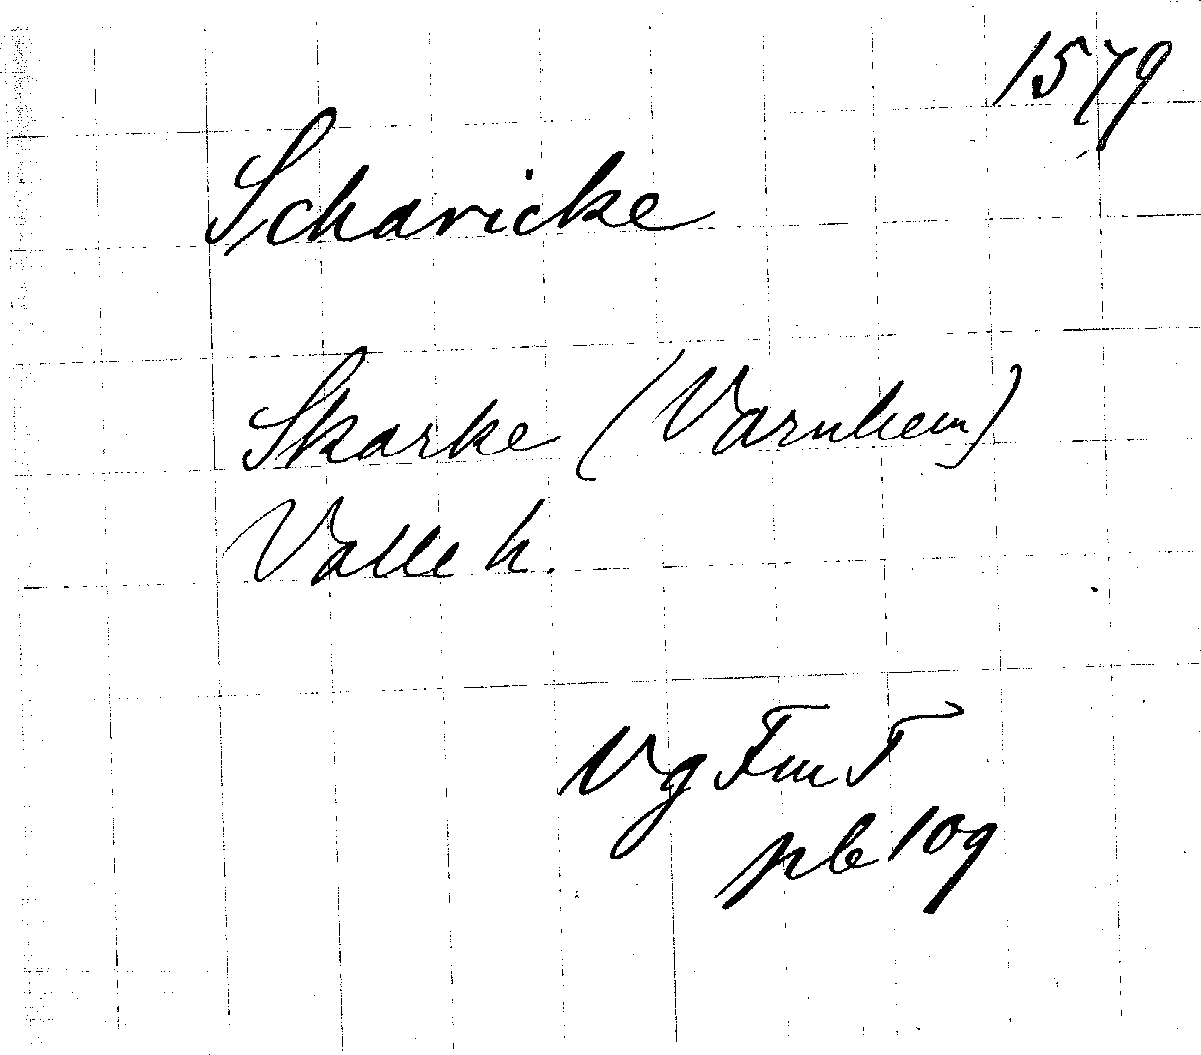 1579
Scharicke
Skarke (Varnhem)
Valle h.
Vg FmT
pb 109